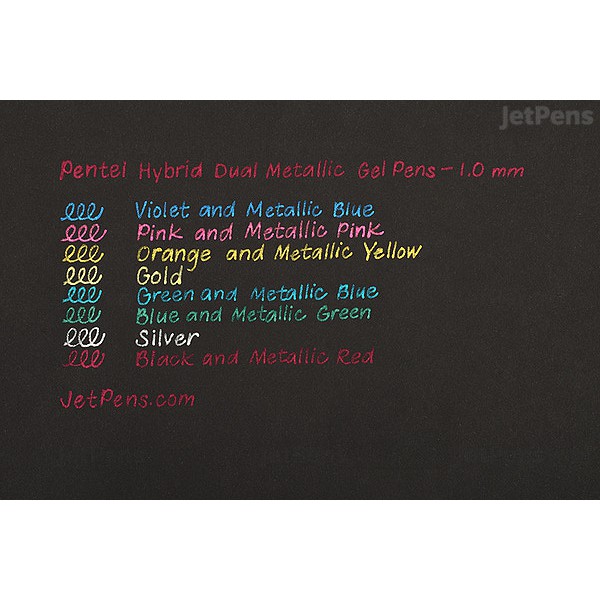 JetPens
Pentel Hybrid Dual Metallic Gel Pens - 1.0 mm
Violet and Metallic Blue
Pink and Metallic Pink
Orange and Metallic Yellow
Gold
Green and Metallic Blue
Blue and Metallic Green
Silver
Black and Metallic Red
JetPens.com